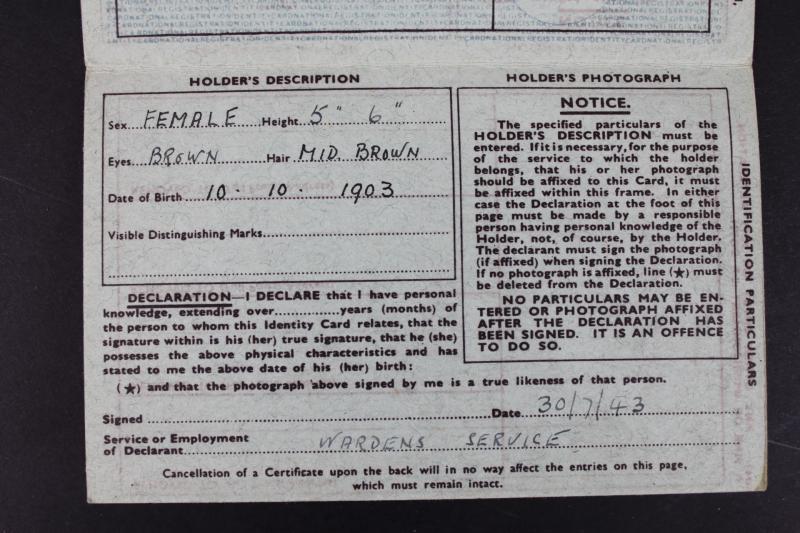 HOLDER'S DESCRIPTION
Sex FEMALE Height 5" 6"
Eyes BROWN Hair MID BROWN
Date of Birth 10 · 10 · 1903
Visible Distinguishing Marks
DECLARATION—I DECLARE that I have personal
knowledge, extending over..............years (months) of
the person to whom this Identity Card relates, that the
signature within is his (her) true signature, that he (she)
possesses the above physical characteristics and has
stated to me the above date of his (her) birth:
(★) and that the photograph above signed by me is a true likeness of that person.
Signed Date 30/7/43
Service or Employment
of Declarant WARDENS SERVICE
Cancellation of a Certificate upon the back will in no way affect the entries on this page,
which must remain intact.
HOLDER'S PHOTOGRAPH
NOTICE.
The specified particulars of the
HOLDER'S DESCRIPTION must be
entered. If it is necessary, for the purpose
of the service to which the holder
belongs, that his or her photograph
should be affixed to this Card, it must
be affixed within this frame. In either
case the Declaration at the foot of this
page must be made by a responsible
person having personal knowledge of the
Holder, not, of course, by the Holder.
The declarant must sign the photograph
(if affixed) when signing the Declaration.
If no photograph is affixed, line (★) must
be deleted from the Declaration.
NO PARTICULARS MAY BE EN-
TERED OR PHOTOGRAPH AFFIXED
AFTER THE DECLARATION HAS
BEEN SIGNED. IT IS AN OFFENCE
TO DO SO.
IDENTIFICATION PARTICULARS